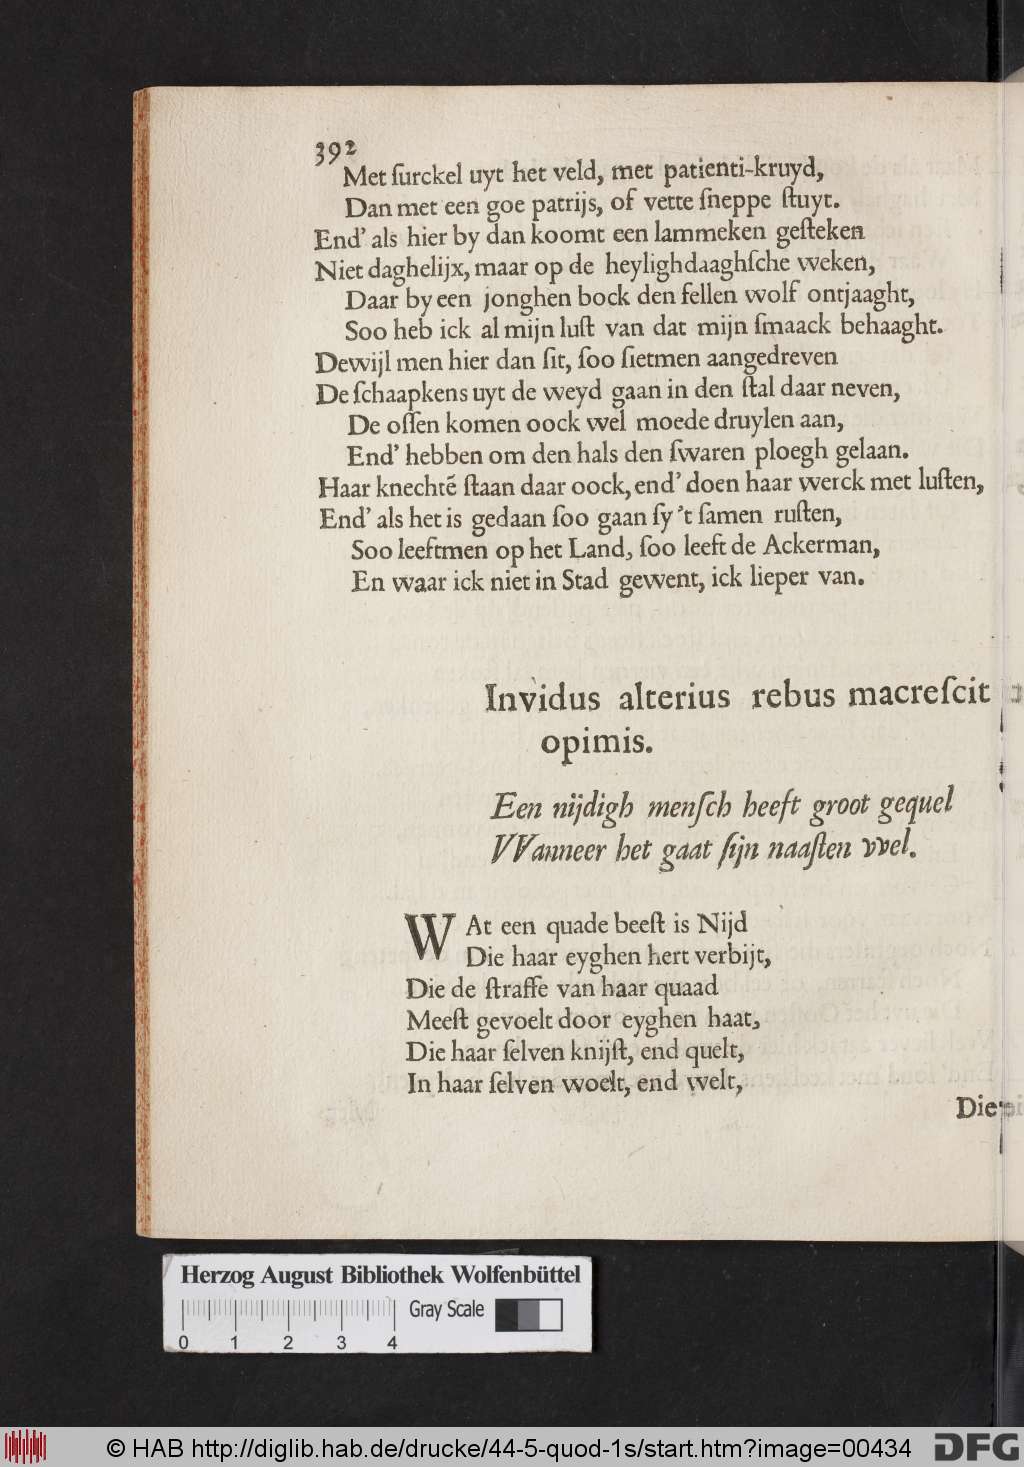 392
Met ſurckel uyt het veld, met patienti-kruyd,
Dan met een goe patrijs, of vette ſneppe ſtuyt.
End' als hier by dan koomt een lammeken geſteken
Niet daghelijx, maar op de heylighdaaghſche weken,
Daar by een jonghen bock den fellen wolf ontjaaght,
Soo heb ick al mijn luſt van dat mijn ſmaack behaaght.
Dewijl men hier dan ſit, ſoo ſietmen aangedreven
De ſchaapkens uyt de weyd gaan in den ſtal daar neven,
De oſſen komen oock wel moede druylen aan,
End' hebben om den hals den ſwaren ploegh gelaan.
Haar knechtẽ ſtaan daar oock, end' doen haar werck met luſten,
End' als het is gedaan ſoo gaan ſy 't ſamen ruſten,
Soo leeftmen op het Land, ſoo leeft de Ackerman,
En waar ick niet in Stad gewent, ick lieper van.
Invidus alterius rebus macreſcit
opimis.
Een nijdigh menſch heeft groot gequel
VVanneer het gaat ſijn naaſten vvel.
WAt een quade beeſt is Nijd
Die haar eyghen hert verbijt,
Die de ſtraffe van haar quaad
Meeſt gevoelt door eyghen haat,
Die haar ſelven knijſt, end quelt,
In haar ſelven woelt, end welt,
Die
Herzog August Bibliothek Wolfenbüttel
Gray Scale
0 1 2 3 4
© HAB http://diglib.hab.de/drucke/44-5-quod-1s/start.htm?image=00434
DFG